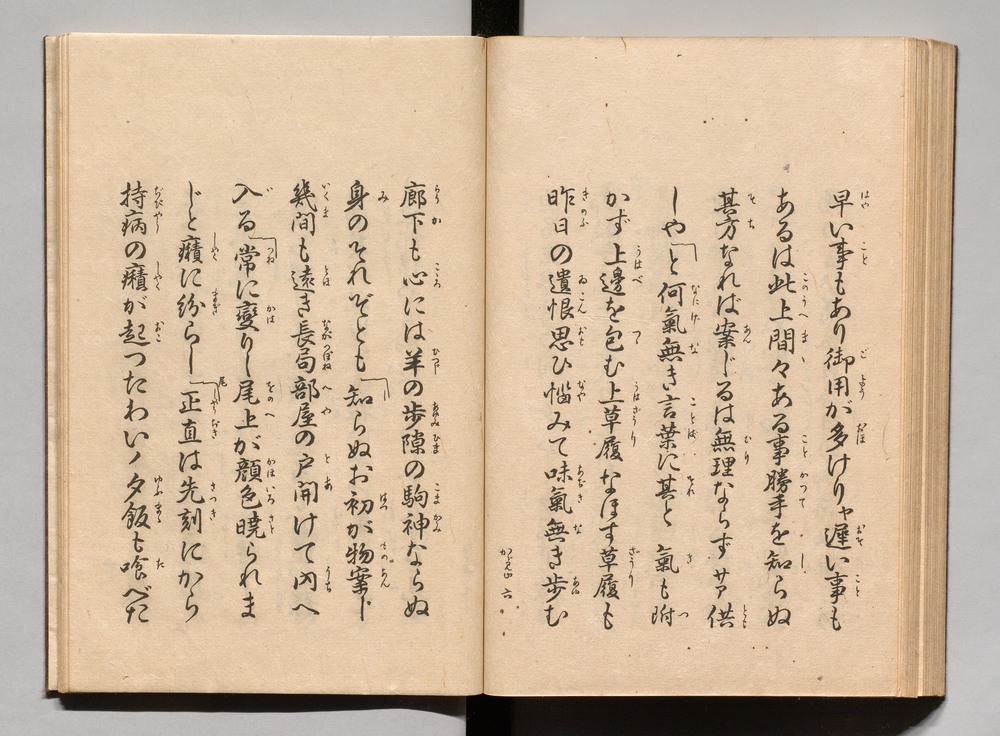 早い事もあり御用が多けりャ遅い事も
あるは此上間々ある事勝手を知らぬ
其方なれば案じるは無理ならずサア供
しや「と何氣無き言葉に其と 氣も附
かず上邊を包む上草履なほす草履も
昨日の遺恨思ひ惱みて味氣無き歩む
かゞ見山 六
廊下も心には羊の歩隙の駒神ならぬ
身のそれぞとも「知らぬお初が物案じ
幾間も遠き長局部屋の戸開けて內へ
入る「常に變りし尾上が顏色曉られま
じと癪に紛らし「正直は先刻にから
持病の癪が起つたわいノ夕飯も喰べた